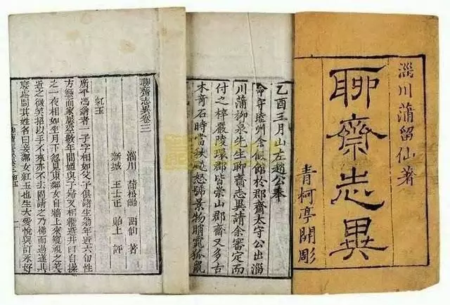 淄川蒲留仙著
聊齋志異
青柯亭開雕
乙酉三月山左趙公奉
命守睦州余假館於郡齋太守公出淄
川蒲柳泉先生聊齋志異請余審定而
付之梓嚴陵環郡皆崇山郡齋又多古
木奇石時當秋飆怒號景物睄窕狐鼠
聊齋志異卷三
淄川 蒲松齡 留仙 著
新城 王士正 貽上 評
紅玉
廣平馮翁者一子字相如父子俱諸生翁年近六旬性
方鯁而家屢空數年間媼與子婦又相繼逝井臼自操
之一夜相如坐月下忽見東鄰女自牆上來窺視之美
近之微笑招以手不來亦不去固請之乃梯而過遂共
寢處問其姓名曰妾鄰女紅玉也生大愛悅與訂永好